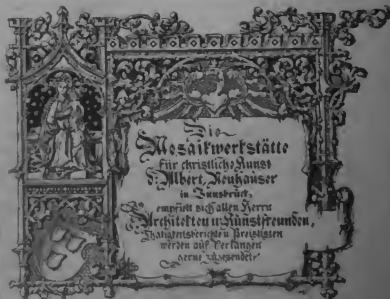 Die
Mosaikwerkstätte
für christliche Kunst
d. Albert Neuhauser
in Innsbruck,
empfielt sich allen Herrn
Architekten u. Kunstfreunden,
Thätigkeitsberichte u. Preislisten
werden auf Verlangen
gerne zugesendet.